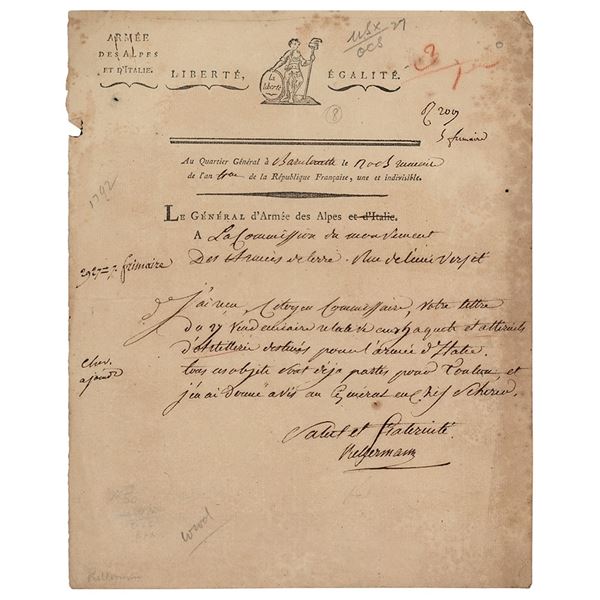 ARMÉE
DES ALPES
ET D'ITALIE.
LIBERTÉ, ÉGALITÉ.
La
liberté
8
5 frimaire
Au Quartier Général à le mois
de l'an de la République Française, une et indivisible.
1792
LE GÉNÉRAL d'Armée des Alpes et d'Italie.
A La Commission du mouvement
Des Armées de terre.
2927 = 7 frimaire
J'ai reçu, Citoyen Commissaire, votre lettre
du 27 Vendemiaire relative aux et attirails
d'Artillerie destinés pour l'armée d'Italie.
tous ces objets sont deja partis pour Toulon, et
j'en ai donné avis au Général en Chef Scherer.
Salut et fraternité.
Kellermann